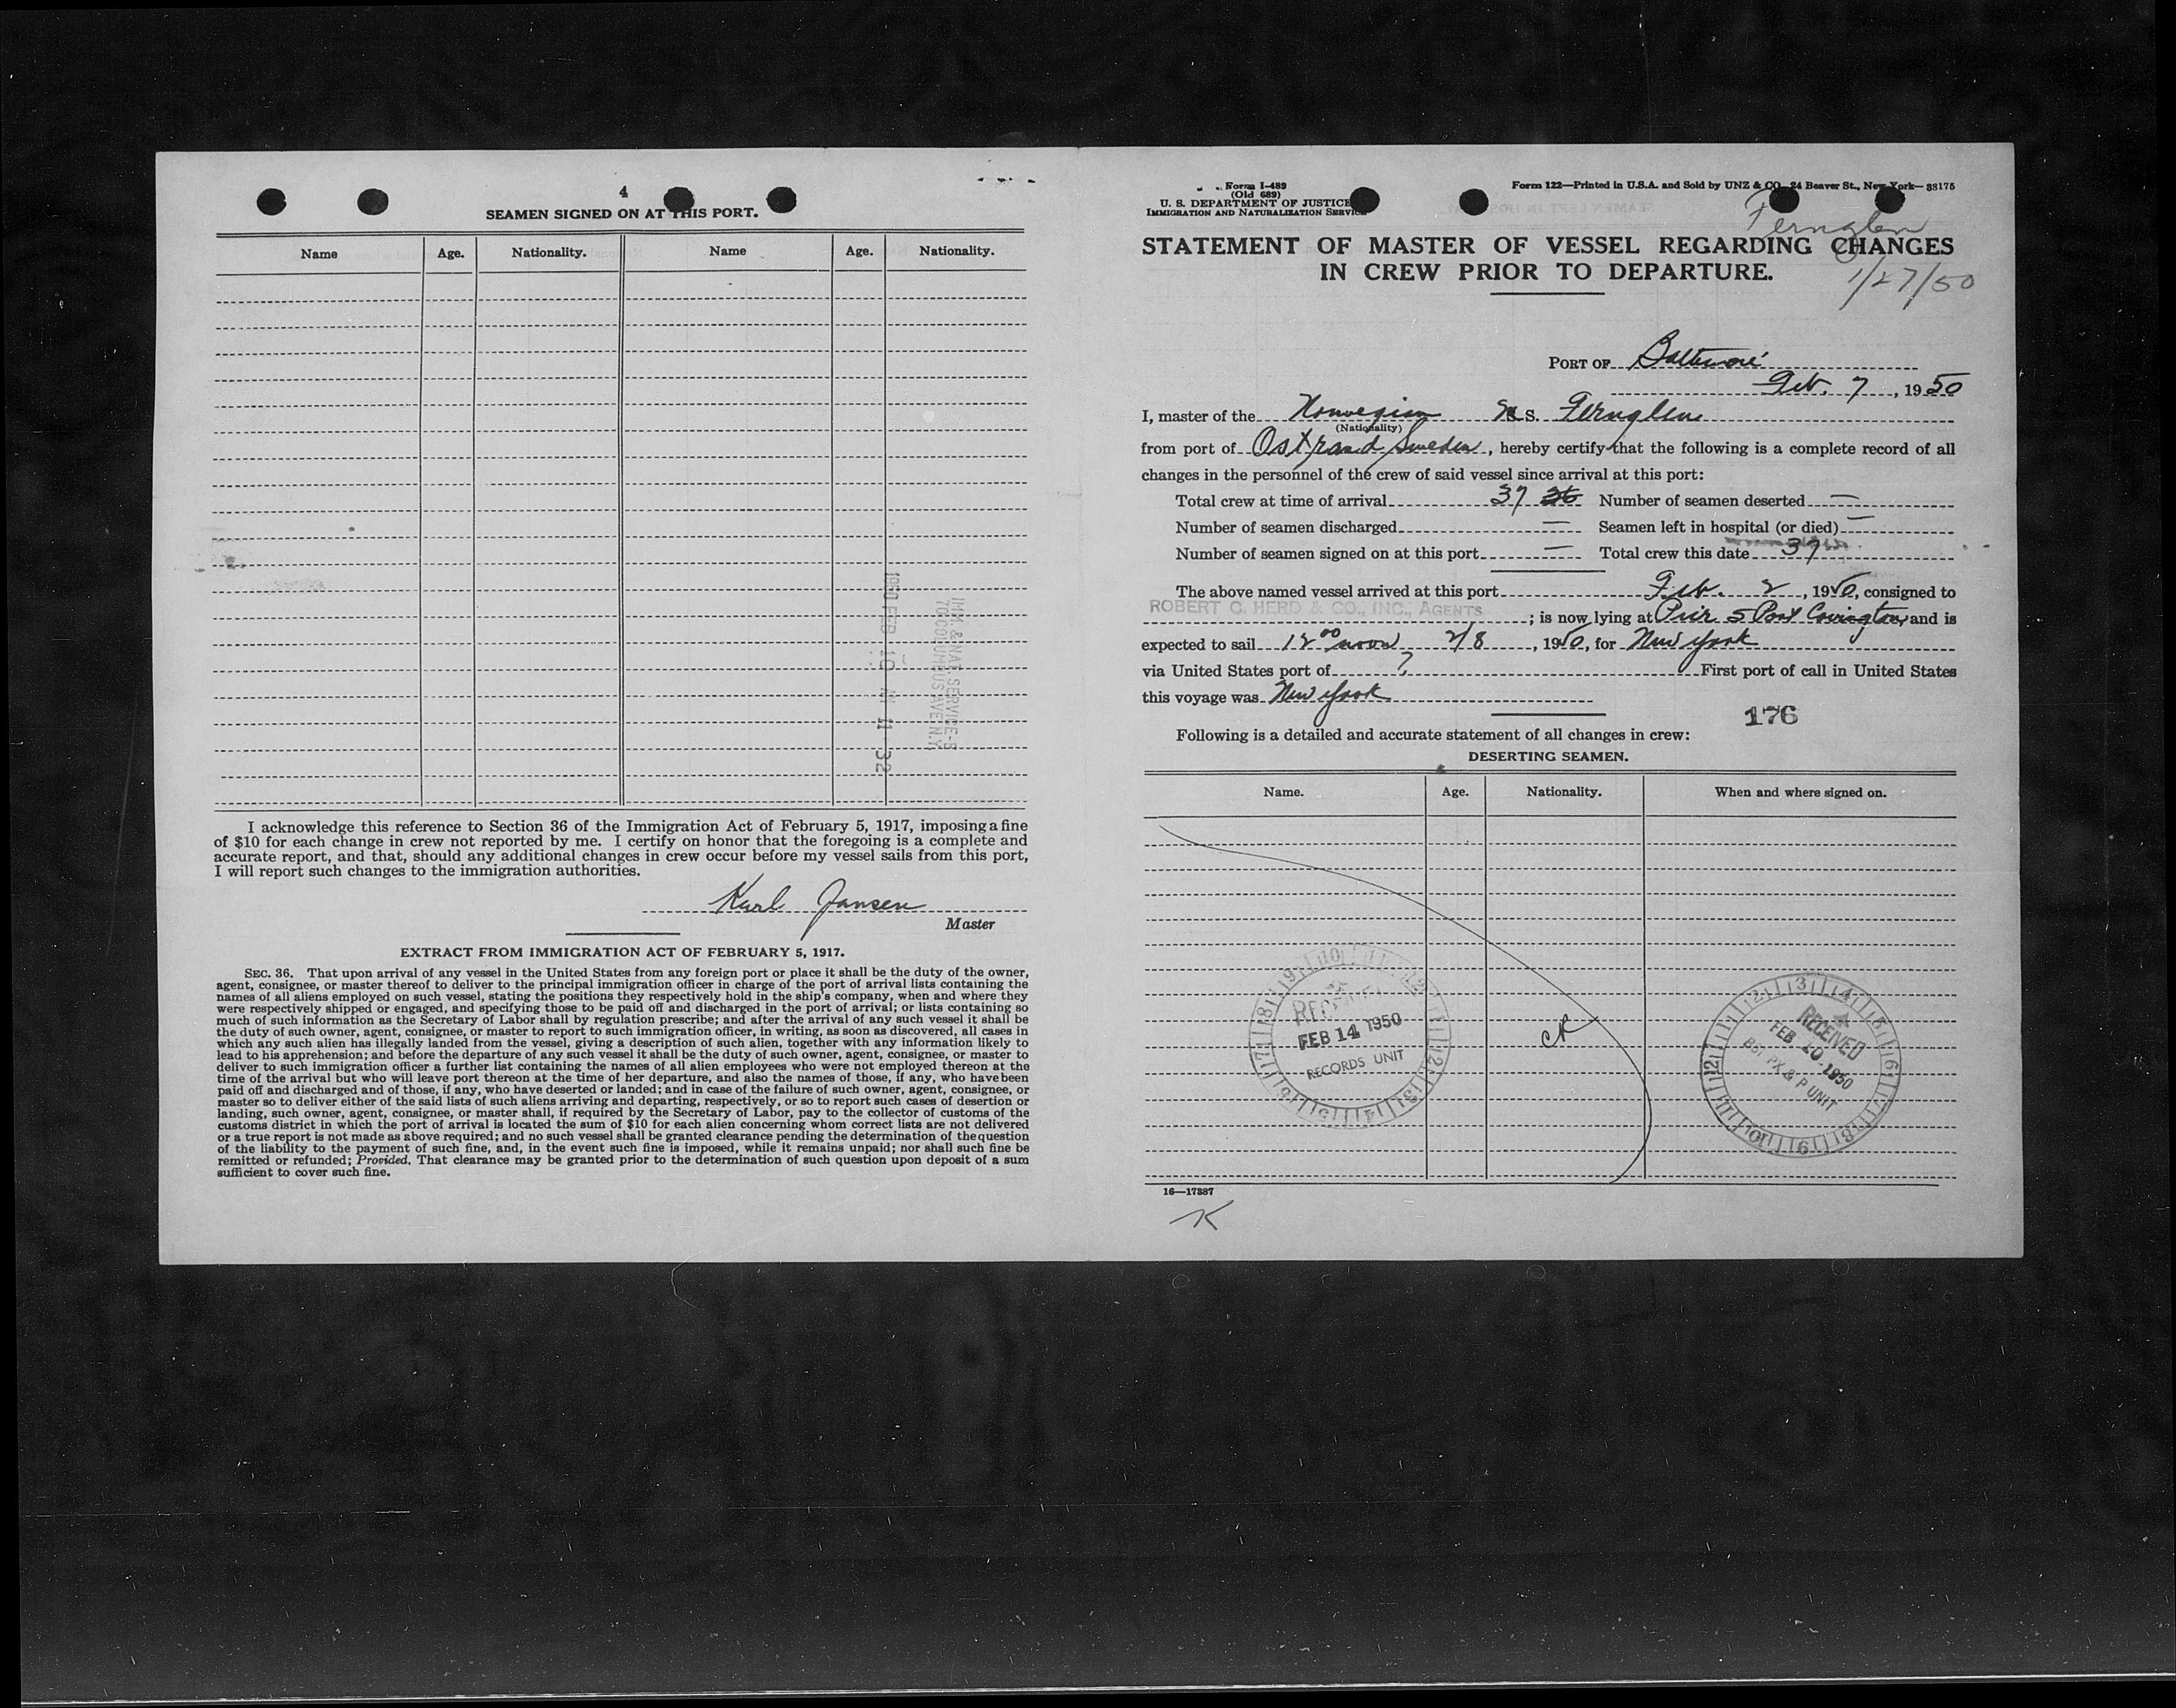 4
SEAMEN SIGNED ON AT THIS PORT.
Name Age. Nationality. Name Age. Nationality.
1950 FEB 10 11 32
IMM. & NAT. SERVICE-5
70 COLUMBUS AVE N.Y.
I acknowledge this reference to Section 36 of the Immigration Act of February 5, 1917, imposing a fine
of $10 for each change in crew not reported by me. I certify on honor that the foregoing is a complete and
accurate report, and that, should any additional changes in crew occur before my vessel sails from this port,
I will report such changes to the immigration authorities.
Karl Jansen
Master
EXTRACT FROM IMMIGRATION ACT OF FEBRUARY 5, 1917.
SEC. 36. That upon arrival of any vessel in the United States from any foreign port or place it shall be the duty of the owner,
agent, consignee, or master thereof to deliver to the principal immigration officer in charge of the port of arrival lists containing the
names of all aliens employed on such vessel, stating the positions they respectively hold in the ship's company, when and where they
were respectively shipped or engaged, and specifying those to be paid off and discharged in the port of arrival; or lists containing so
much of such information as the Secretary of Labor shall by regulation prescribe; and after the arrival of any such vessel it shall be
the duty of such owner, agent, consignee, or master to report to such immigration officer, in writing, as soon as discovered, all cases in
which any such alien has illegally landed from the vessel, giving a description of such alien, together with any information likely to
lead to his apprehension; and before the departure of any such vessel it shall be the duty of such owner, agent, consignee, or master to
deliver to such immigration officer a further list containing the names of all alien employees who were not employed thereon at the
time of the arrival but who will leave port thereon at the time of her departure, and also the names of those, if any, who have been
paid off and discharged and of those, if any, who have deserted or landed; and in case of the failure of such owner, agent, consignee, or
master so to deliver either of the said lists of such aliens arriving and departing, respectively, or so to report such cases of desertion or
landing, such owner, agent, consignee, or master shall, if required by the Secretary of Labor, pay to the collector of customs of the
customs district in which the port of arrival is located the sum of $10 for each alien concerning whom correct lists are not delivered
or a true report is not made as above required; and no such vessel shall be granted clearance pending the determination of the question
of the liability to the payment of such fine, and, in the event such fine is imposed, while it remains unpaid; nor shall such fine be
remitted or refunded; Provided, That clearance may be granted prior to the determination of such question upon deposit of a sum
sufficient to cover such fine.
Form I-489
(Old 689)
U. S. DEPARTMENT OF JUSTICE
IMMIGRATION AND NATURALIZATION SERVICE
Form 122—Printed in U.S.A. and Sold by UNZ & CO., 24 Beaver St., New York—38175
Fernglen
STATEMENT OF MASTER OF VESSEL REGARDING CHANGES
IN CREW PRIOR TO DEPARTURE.
1/27/50
PORT OF Baltimore
Feb. 7, 1950
I, master of the Norwegian M S. Fernglen
(Nationality)
from port of Ostrand Sweden, hereby certify that the following is a complete record of all
changes in the personnel of the crew of said vessel since arrival at this port:
Total crew at time of arrival 37 36 Number of seamen deserted —
Number of seamen discharged — Seamen left in hospital (or died) —
Number of seamen signed on at this port — Total crew this date 37
The above named vessel arrived at this port Feb. 2, 1950, consigned to
ROBERT C. HERD & CO., INC., AGENTS; is now lying at Pier 5 Port Covington, and is
expected to sail 12 00 noon 2/8, 1950, for New York
via United States port of ? First port of call in United States
this voyage was New York
176
Following is a detailed and accurate statement of all changes in crew:
DESERTING SEAMEN.
Name. Age. Nationality. When and where signed on.
RECEIVED
FEB 14 1950
RECORDS UNIT
CR
RECEIVED
FEB 10 1950
P UNIT
16—17387
K